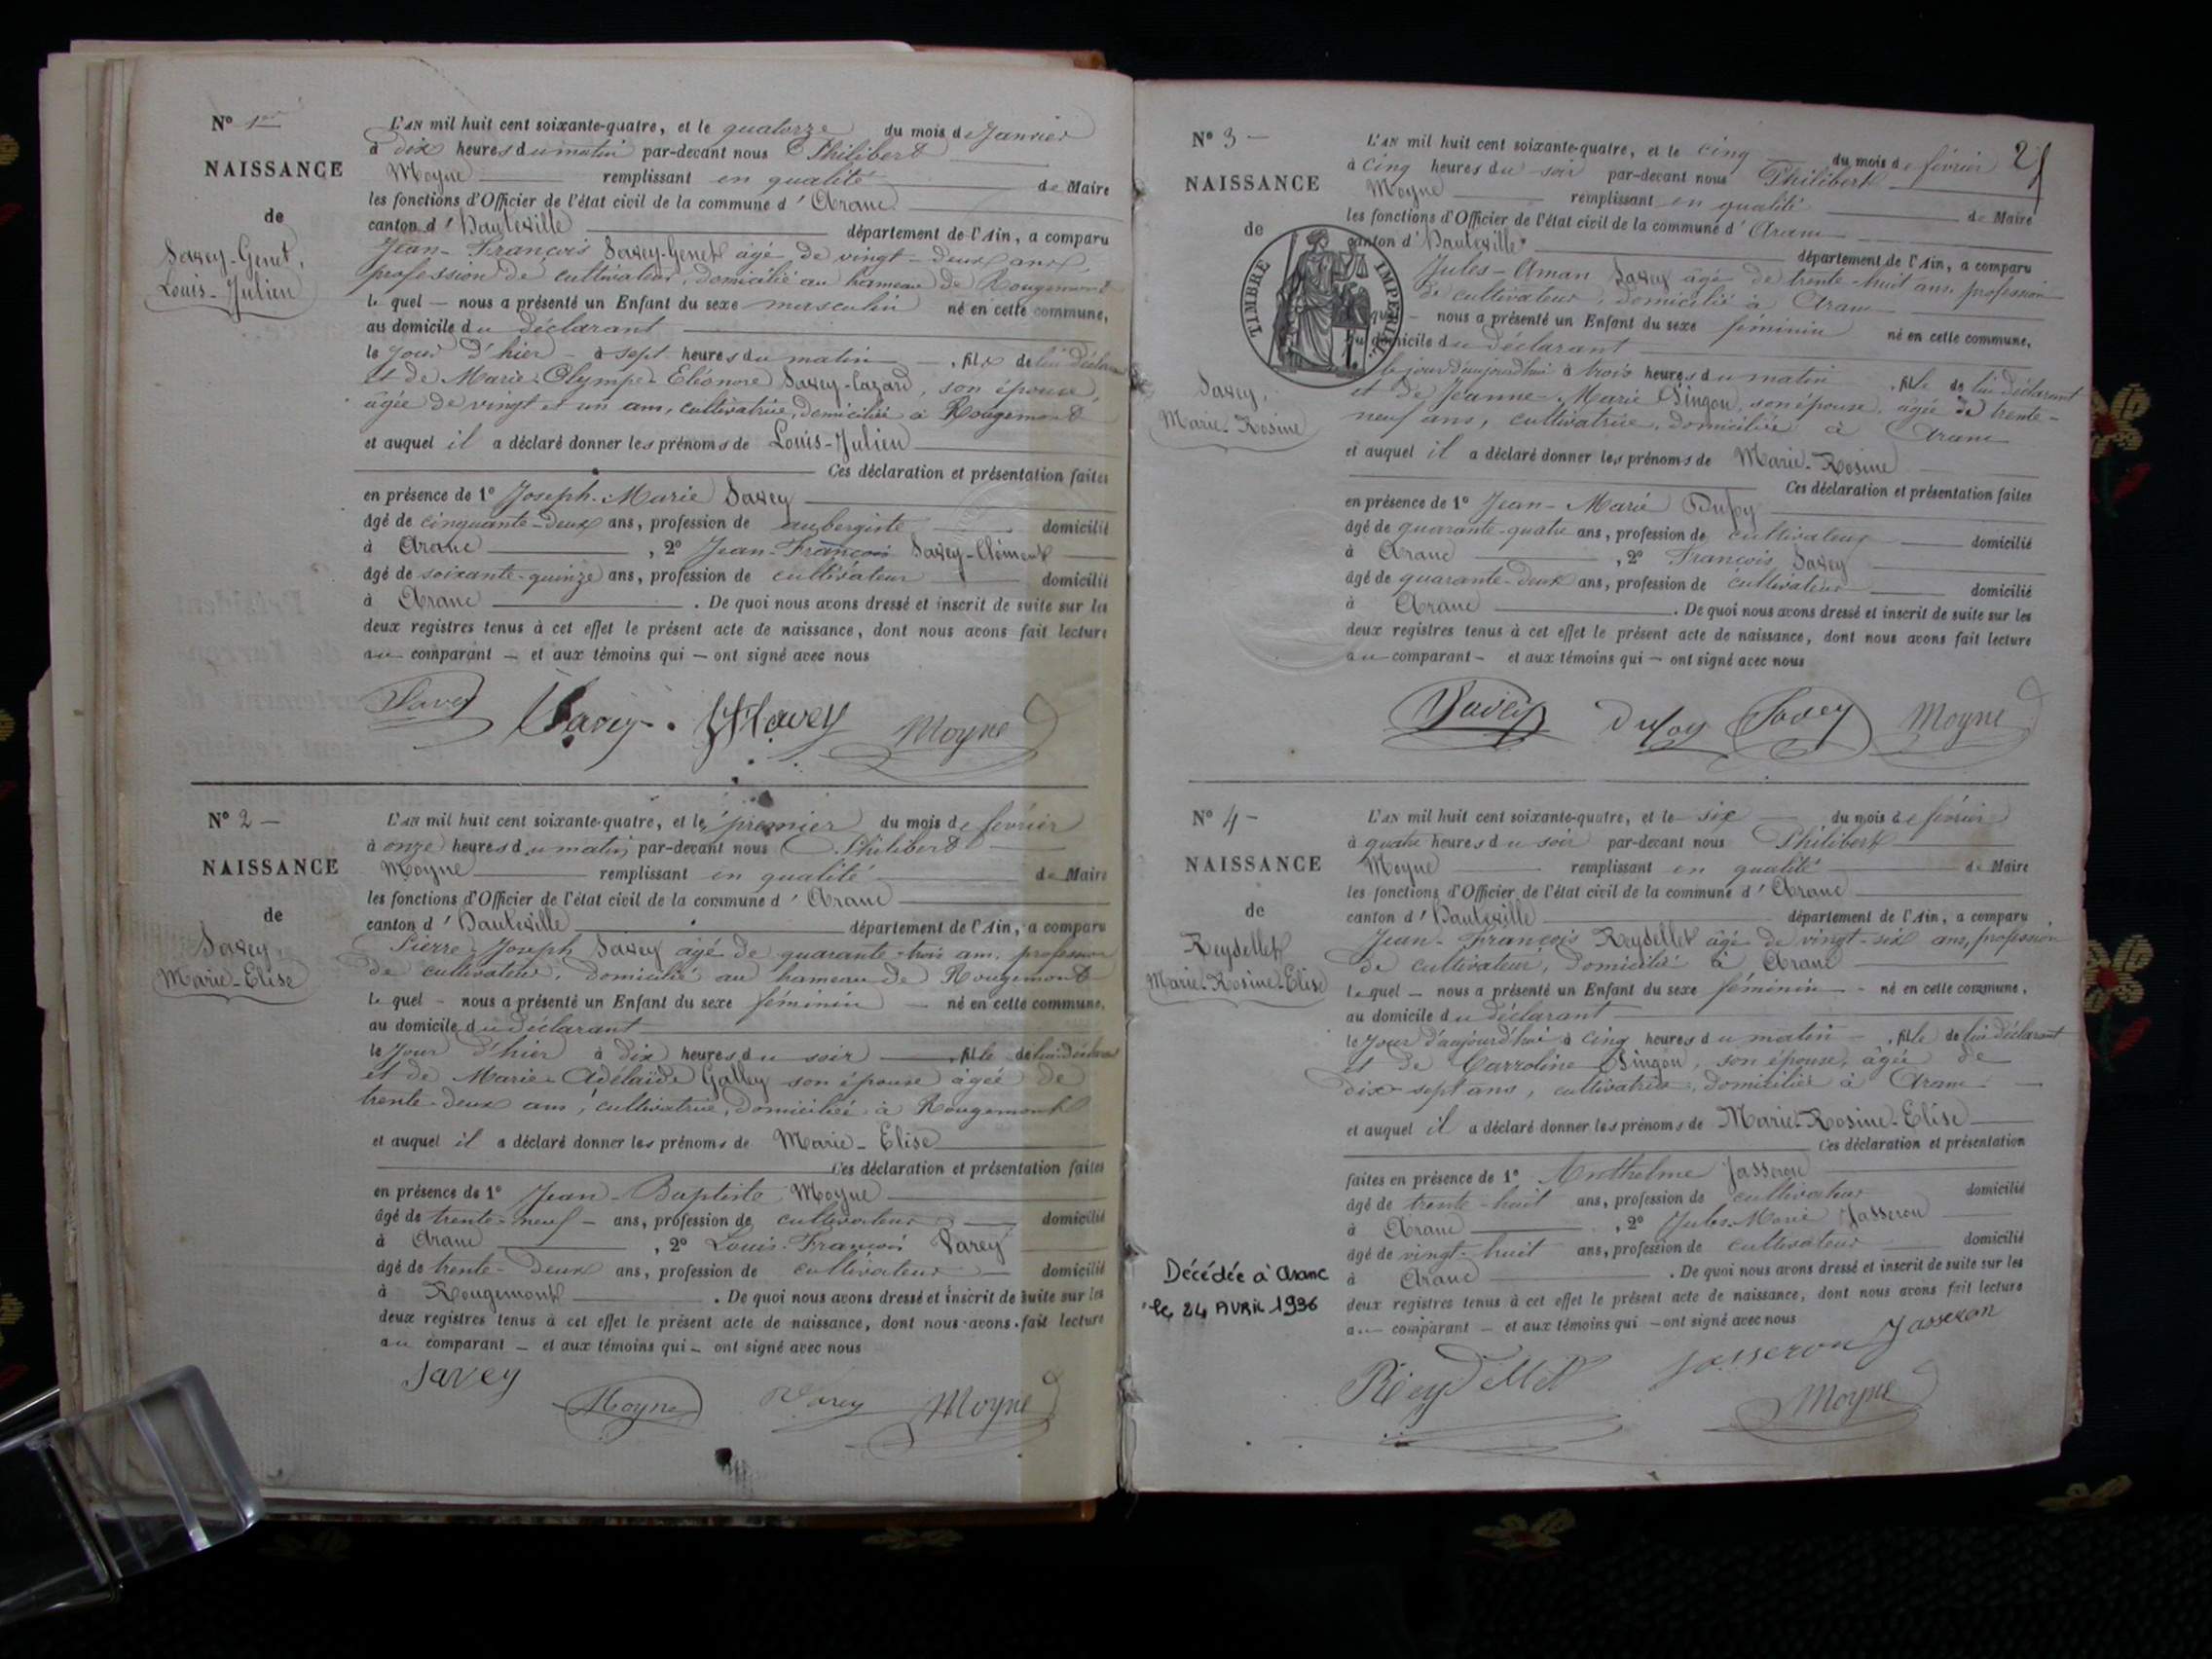 N° 1er
NAISSANCE
de
Savey-Genet,
Louis-Julien
L'AN mil huit cent soixante-quatre, et le quatorze du mois de Janvier
à dix heures du matin par-devant nous Philibert
Moyne remplissant en qualité de Maire
les fonctions d'Officier de l'état civil de la commune d'Aranc
canton d'Hauteville département de l'Ain, a comparu
Jean-François Savey-Genet âgé de vingt-deux ans,
profession de cultivateur, domicilié au hameau de Rougemont
le quel — nous a présenté un Enfant du sexe masculin né en cette commune,
au domicile du déclarant
le jour d'hier à sept heures du matin, fils de lui déclarant
et de Marie-Olympe-Eléonore Savey-Cazard, son épouse,
âgée de vingt et un ans, cultivatrice, domiciliée à Rougemont
et auquel il a déclaré donner les prénoms de Louis-Julien
Ces déclaration et présentation faites
en présence de 1° Joseph-Marie Savey
âgé de cinquante-deux ans, profession de aubergiste domicilié
à Aranc, 2° Jean-François Savey-Clément
âgé de soixante-quinze ans, profession de cultivateur domicilié
à Aranc. De quoi nous avons dressé et inscrit de suite sur les
deux registres tenus à cet effet le présent acte de naissance, dont nous avons fait lecture
au comparant — et aux témoins qui — ont signé avec nous
Savey Savey Savey Moyne
N° 2 —
NAISSANCE
de
Savey,
Marie-Elise
L'AN mil huit cent soixante-quatre, et le premier du mois de février
à onze heures du matin par-devant nous Philibert
Moyne remplissant en qualité de Maire
les fonctions d'Officier de l'état civil de la commune d'Aranc
canton d'Hauteville département de l'Ain, a comparu
Pierre-Joseph Savey âgé de quarante-trois ans, profession
de cultivateur, domicilié au hameau de Rougemont
le quel — nous a présenté un Enfant du sexe féminin — né en cette commune,
au domicile du déclarant
le jour d'hier à dix heures du soir, fille de lui déclarant
et de Marie-Adélaïde Galley son épouse âgée de
trente-deux ans, cultivatrice, domiciliée à Rougemont
et auquel il a déclaré donner les prénoms de Marie-Elise
Ces déclaration et présentation faites
en présence de 1° Jean-Baptiste Moyne
âgé de trente-neuf — ans, profession de cultivateur domicilié
à Aranc, 2° Louis-François Varey
âgé de trente-deux ans, profession de cultivateur domicilié
à Rougemont. De quoi nous avons dressé et inscrit de suite sur les
deux registres tenus à cet effet le présent acte de naissance, dont nous avons fait lecture
au comparant — et aux témoins qui — ont signé avec nous
Savey Moyne Varey Moyne
2
N° 3 —
NAISSANCE
de
TIMBRE IMPERIAL
Savey,
Marie-Rosine
L'AN mil huit cent soixante-quatre, et le cinq du mois de février
à cinq heures du soir par-devant nous Philibert
Moyne remplissant en qualité de Maire
les fonctions d'Officier de l'état civil de la commune d'Aranc
canton d'Hauteville département de l'Ain, a comparu
Jules-Aman Savey âgé de trente-huit ans, profession
de cultivateur, domicilié à Aranc
quel — nous a présenté un Enfant du sexe féminin né en cette commune,
au domicile du déclarant
le jour d'aujourd'hui à trois heures du matin, fille de lui déclarant
et de Jeanne-Marie Singon, son épouse, âgée de trente-
neuf ans, cultivatrice, domiciliée à Aranc
et auquel il a déclaré donner les prénoms de Marie-Rosine
Ces déclaration et présentation faites
en présence de 1° Jean-Marie Dufoy
âgé de quarante-quatre ans, profession de cultivateur domicilié
à Aranc, 2° François Savey
âgé de quarante-deux ans, profession de cultivateur domicilié
à Aranc. De quoi nous avons dressé et inscrit de suite sur les
deux registres tenus à cet effet le présent acte de naissance, dont nous avons fait lecture
au comparant — et aux témoins qui — ont signé avec nous
Savey Dufoy Savey Moyne
N° 4 —
NAISSANCE
de
Reydellet
Marie-Rosine-Elise
L'AN mil huit cent soixante-quatre, et le six du mois de février
à quatre heures du soir par-devant nous Philibert
Moyne remplissant en qualité de Maire
les fonctions d'Officier de l'état civil de la commune d'Aranc
canton d'Hauteville département de l'Ain, a comparu
Jean-François Reydellet âgé de vingt-six ans, profession
de cultivateur, domicilié à Aranc
le quel — nous a présenté un Enfant du sexe féminin — né en cette commune,
au domicile du déclarant
le jour d'aujourd'hui à cinq heures du matin —, fille de lui déclarant
et de Carroline Singon, son épouse, âgée de
dix-sept ans, cultivatrice, domiciliée à Aranc
et auquel il a déclaré donner les prénoms de Marie-Rosine-Elise
Ces déclaration et présentation
faites en présence de 1° Anthelme Jasseron
âgé de trente-huit ans, profession de cultivateur domicilié
à Aranc, 2° Jules-Marie Jasseron
âgé de vingt-huit ans, profession de cultivateur domicilié
à Aranc. De quoi nous avons dressé et inscrit de suite sur les
deux registres tenus à cet effet le présent acte de naissance, dont nous avons fait lecture
au comparant — et aux témoins qui — ont signé avec nous
Reydellet Jasseron Jasseron
Moyne
Décédée à Aranc
le 24 AVRIL 1936